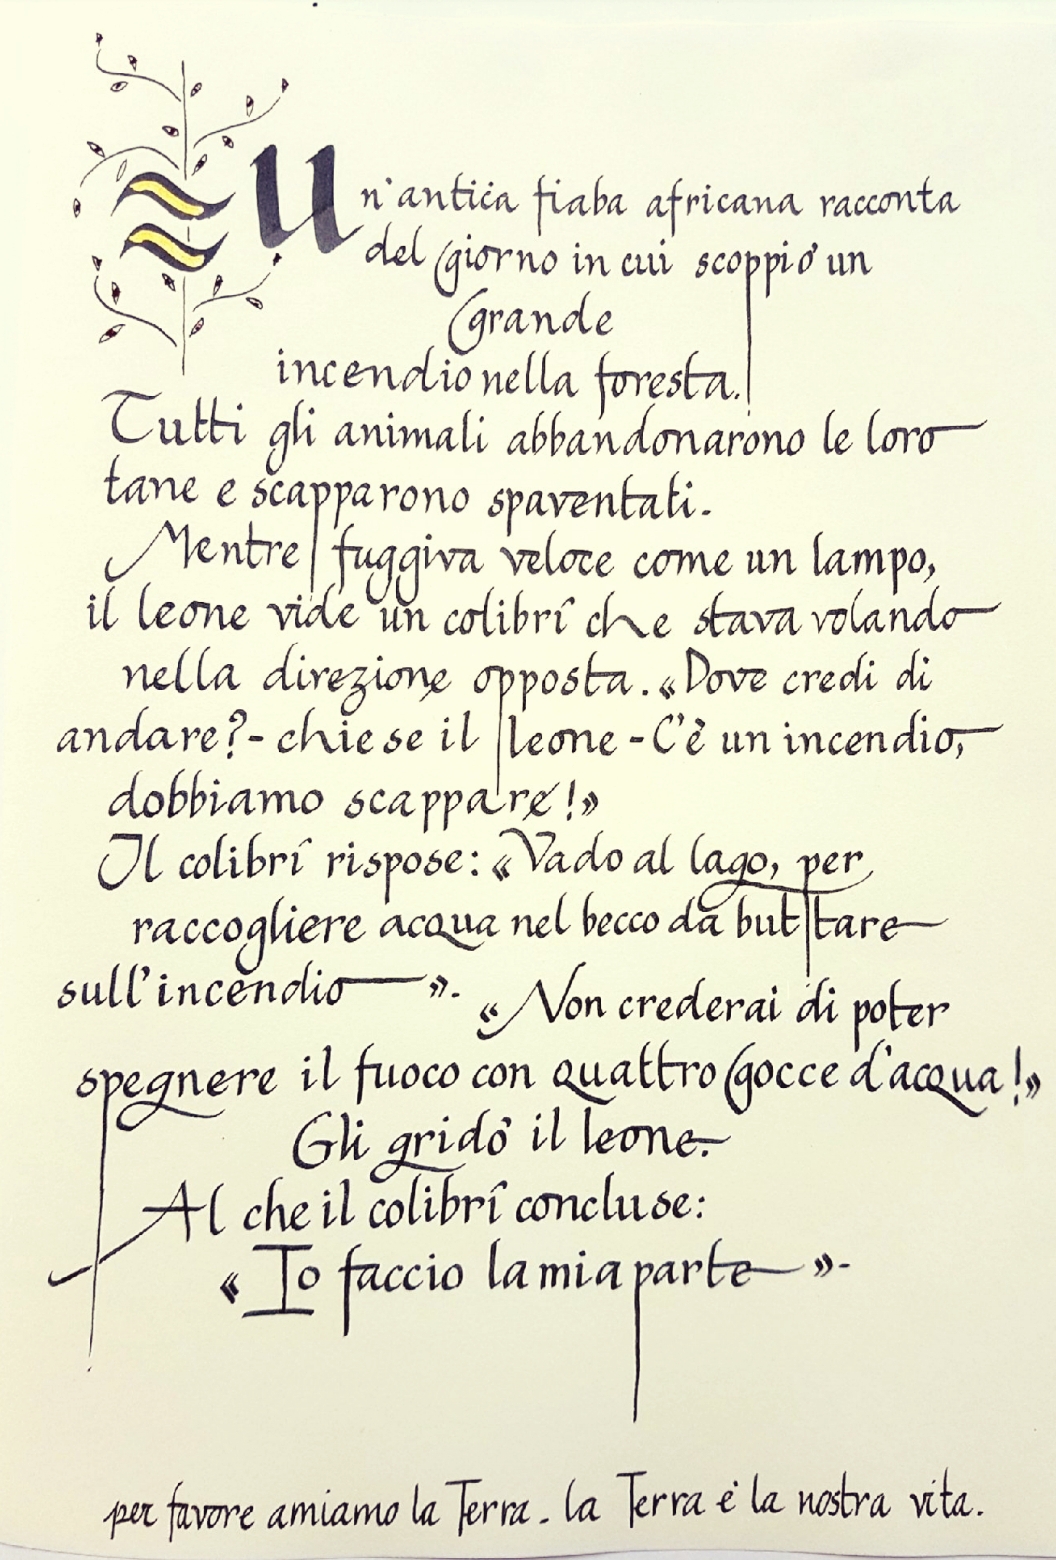 Un'antica fiaba africana racconta
del giorno in cui scoppiò un
Grande
incendio nella foresta.
Tutti gli animali abbandonarono le loro
tane e scapparono spaventati.
Mentre fuggiva veloce come un lampo,
il leone vide un colibrí che stava volando
nella direzione opposta. «Dove credi di
andare? - chiese il leone - C'è un incendio,
dobbiamo scappare!»
Il colibrí rispose: «Vado al lago, per
raccogliere acqua nel becco da buttare
sull'incendio».
«Non crederai di poter
spegnere il fuoco con quattro gocce d'acqua!»
Gli gridò il leone.
Al che il colibrí concluse:
«Io faccio la mia parte».
per favore amiamo la Terra. la Terra è la nostra vita.